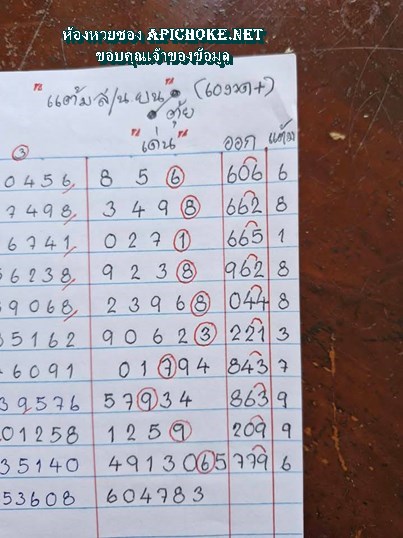 ห้องหวยซอง APICHOKE.NET
ขอบคุณเจ้าของข้อมูล
"แต้ม ส/น บน"
"เด่น" ออก แต้ม
3
0456 856 606 6
7498 3498 662 8
6741 0271 665 1
6238 9238 962 8
9068 23968 044 8
35162 90623 221 3
6091 01794 843 7
39576 57934 863 9
01258 1259 209 9
35140 4913065 779 6
53608 604783